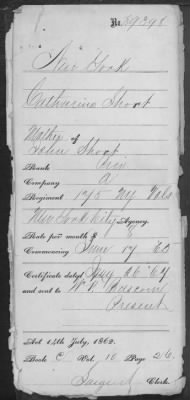 No. 89398
New York
Catharine Short
Mother of
John Short
Rank Priv
Company A
Regiment 175 Ny Vols
New York City Agency.
Rate per month $
Commencing June 17 63
Certificate dated 26 67
and sent to W. Bascom
Present
Act 14th July, 1862.
Book C Vol. 10 Page 26
Sargent Clerk.